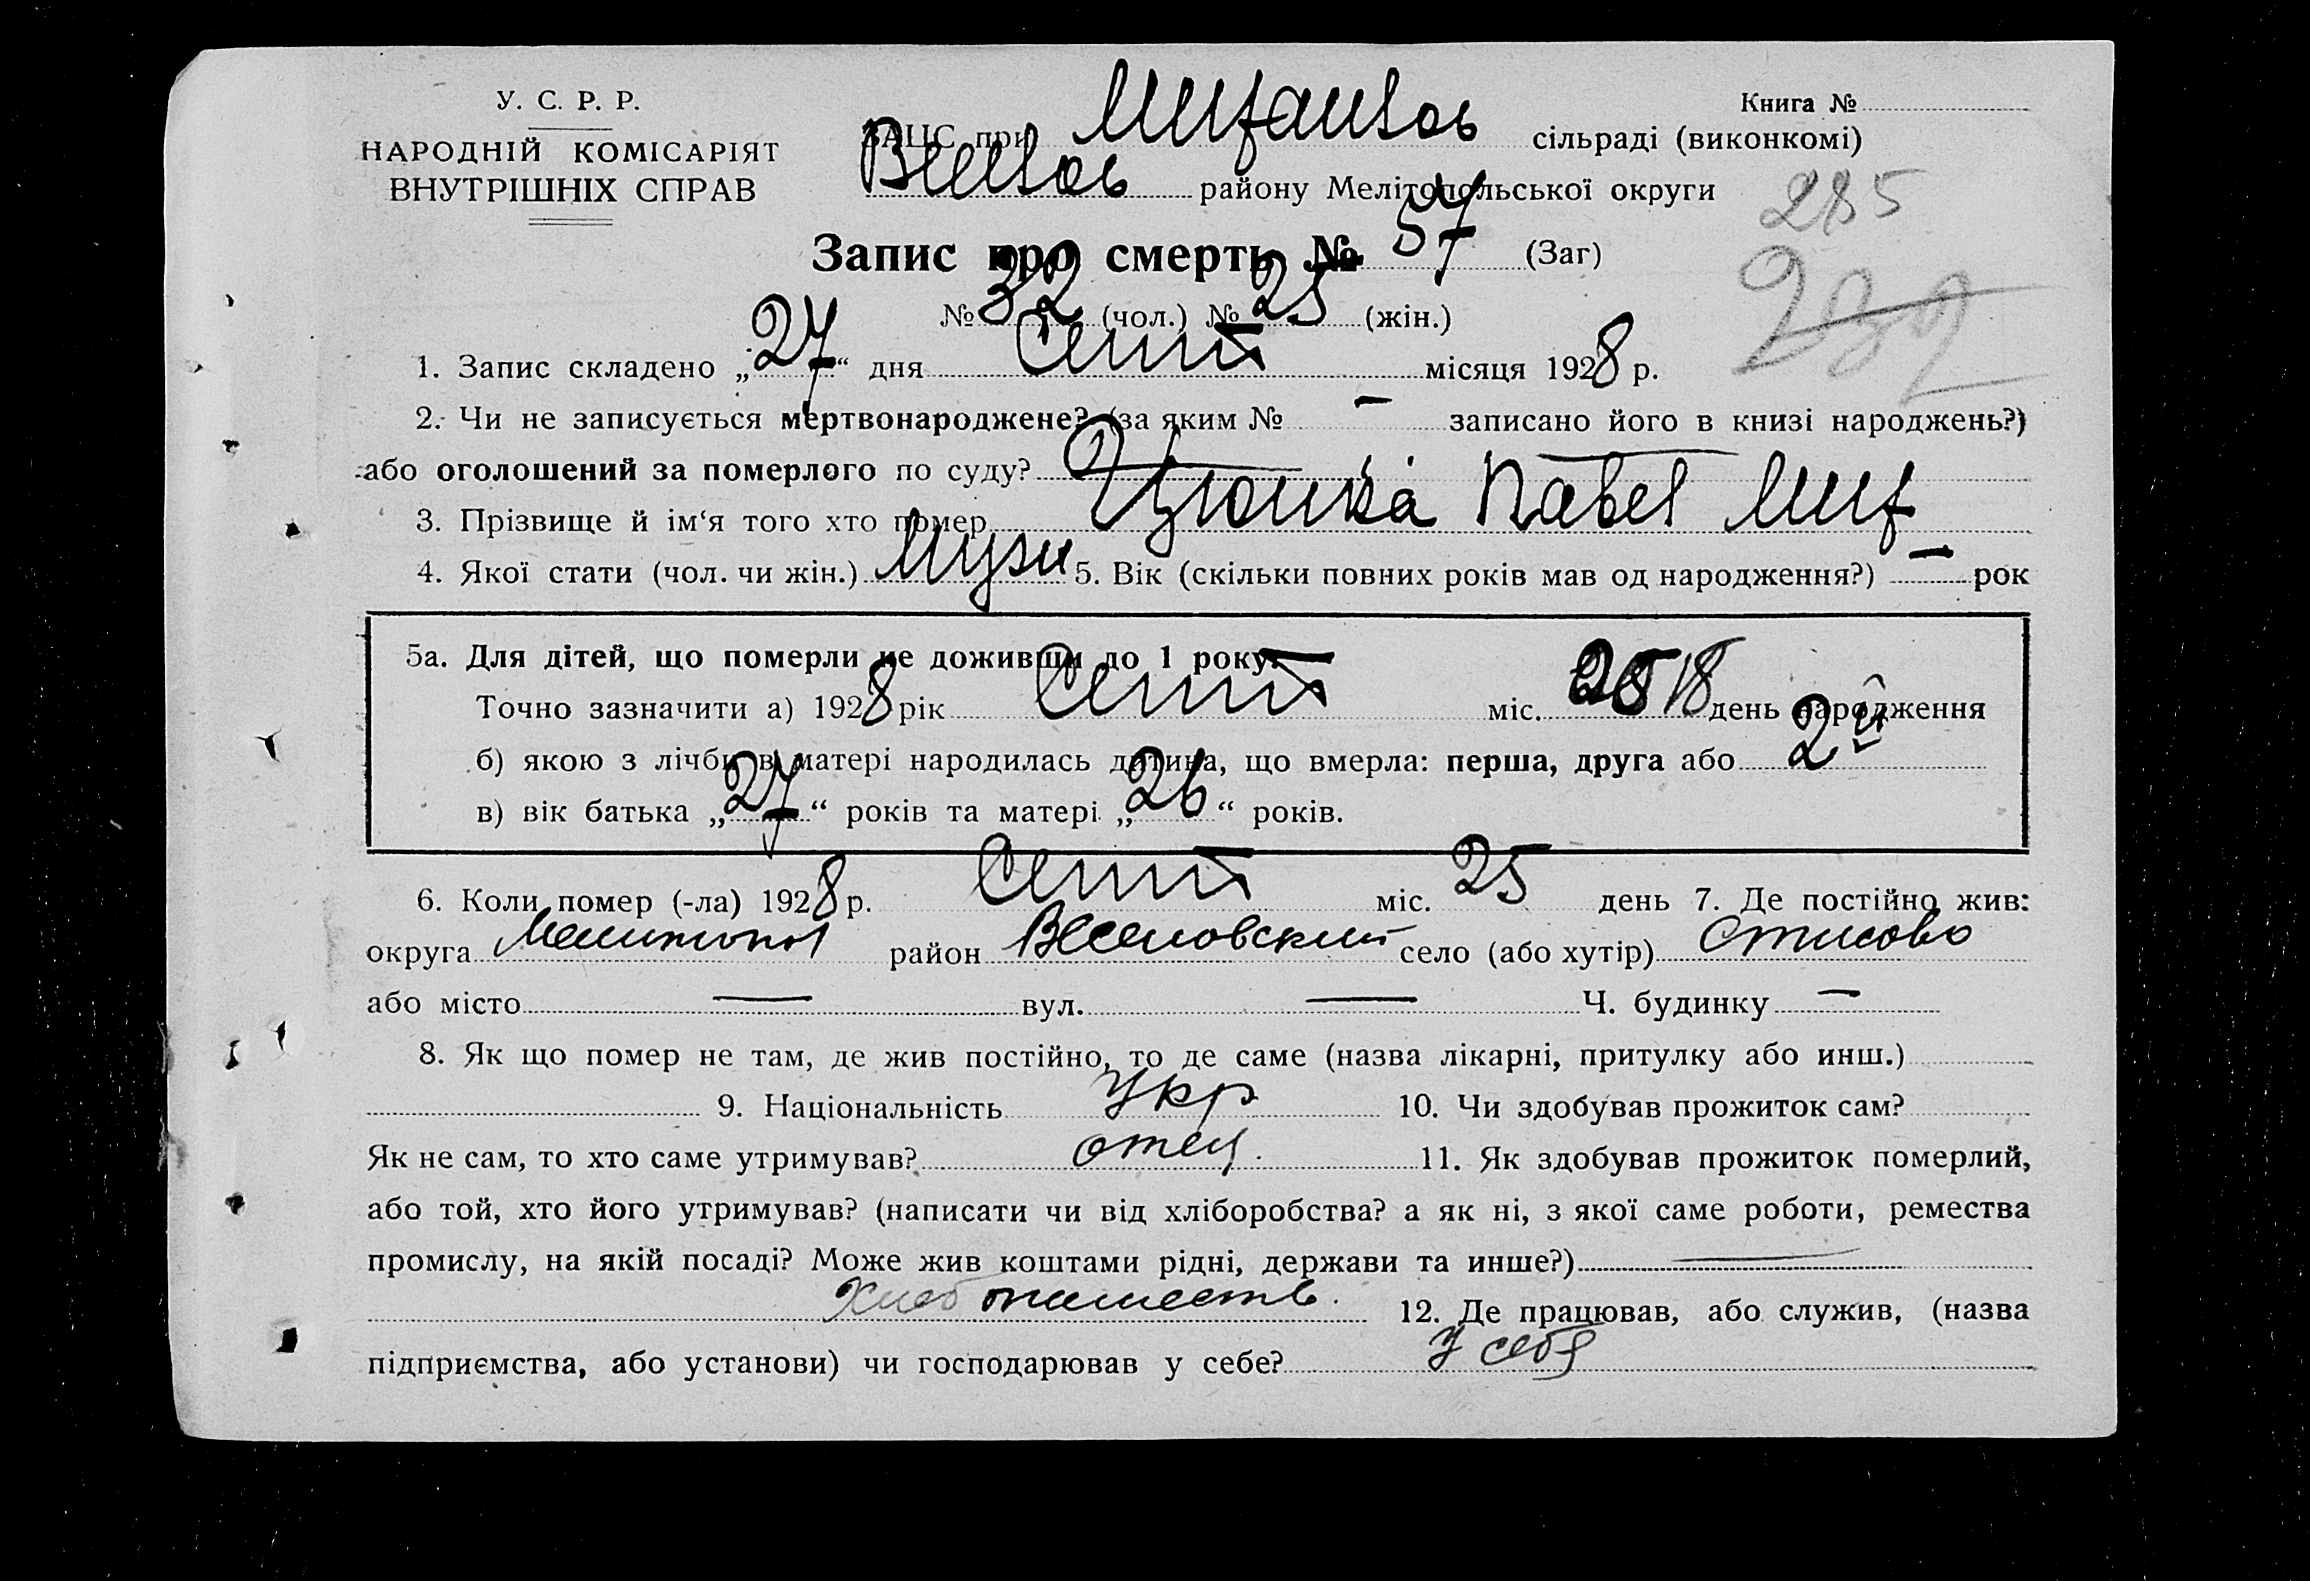 У. С. Р. Р.
НАРОДНІЙ КОМІСАРІЯТ
ВНУТРІШНІХ СПРАВ
Книга №
ЗАЦС при сільраді (виконкомі)
району Мелітопольської округи
285
Запис про смерть № 57 (Заг)
№ 32 (чол.) № 25 (жін.)
1. Запис складено „27“ дня Сент місяця 1928 р.
2. Чи не записується мертвонароджене? (за яким № — записано його в книзі народжень?)
або оголошений за померлого по суду?
3. Прізвище й ім‘я того хто помер Павел
4. Якої стати (чол. чи жін.) Мужч 5. Вік (скільки повних років мав од народження?) — рок
5а. Для дітей, що померли не доживши до 1 року:
Точно зазначити а) 1928 рік Сент міс. 18 день народження
б) якою з лічби в матері народилась дитина, що вмерла: перша, друга або 2й
в) вік батька „27“ років та матері „26“ років.
6. Коли помер (-ла) 1928 р. Сент міс. 25 день 7. Де постійно жив:
округа Мелитопол район Веселовский село (або хутір)
або місто — вул. — Ч. будинку —
8. Як що помер не там, де жив постійно, то де саме (назва лікарні, притулку або инш.)
9. Національність Укр 10. Чи здобував прожиток сам?
Як не сам, то хто саме утримував? отец. 11. Як здобував прожиток померлий,
або той, хто його утримував? (написати чи від хліборобства? а як ні, з якої саме роботи, ремества
промислу, на якій посаді? Може жив коштами рідні, держави та инше?) —
12. Де працював, або служив, (назва
підприємства, або установи) чи господарював у себе? У себя